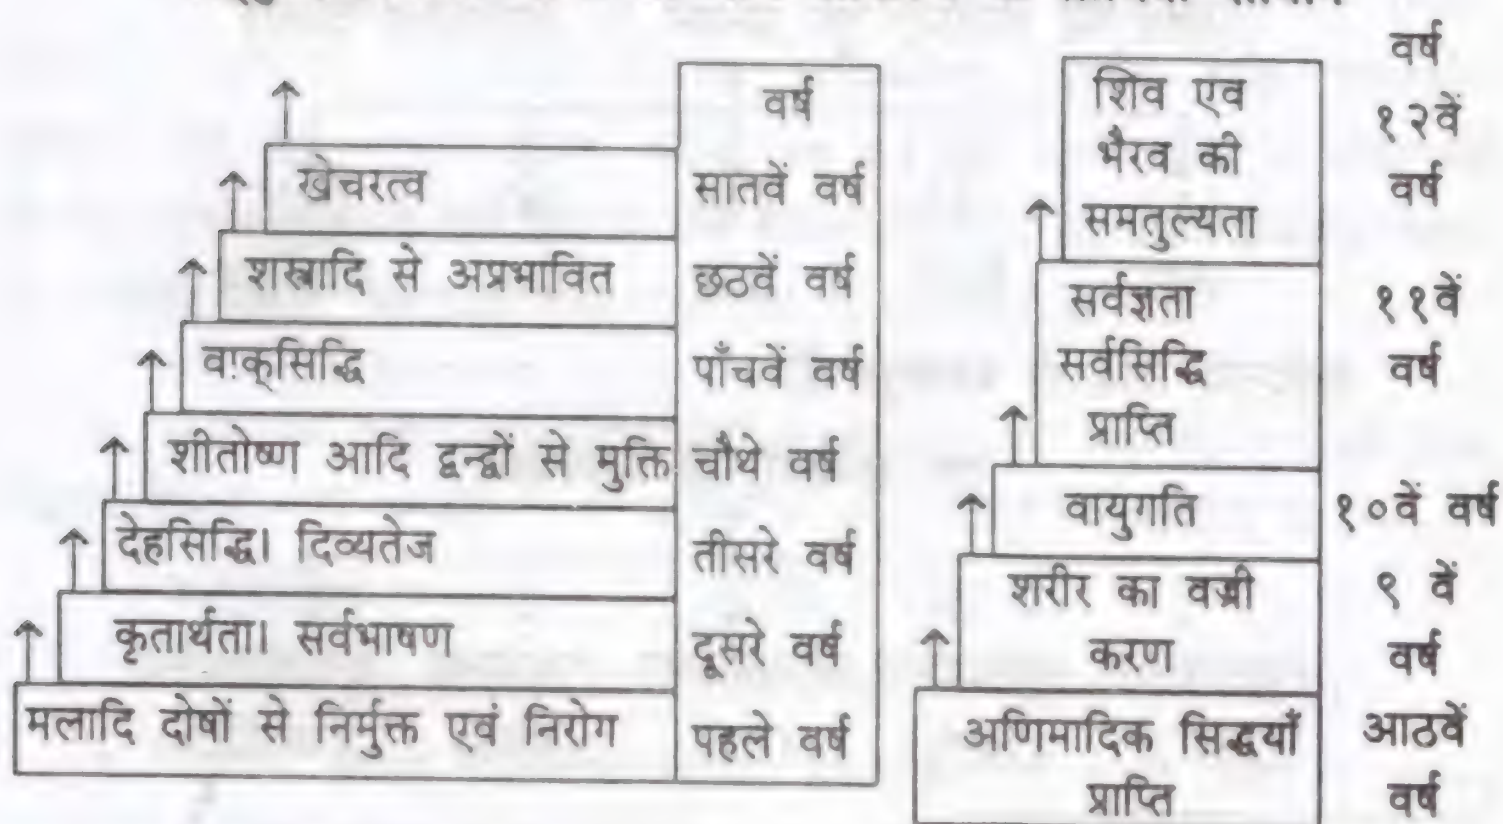 वर्ष
खेचरत्व सातवें वर्ष
शस्त्रादि से अप्रभावित छठवें वर्ष
वाक्सिद्धि पाँचवें वर्ष
शीतोष्ण आदि द्वन्द्वों से मुक्ति चौथे वर्ष
देहसिद्धि। दिव्यतेज तीसरे वर्ष
कृतार्थता। सर्वभाषण दूसरे वर्ष
मलादि दोषों से निर्मुक्त एवं निरोग पहले वर्ष
वर्ष
शिव एव
१२वें
भैरव की
वर्ष
समतुल्यता
सर्वज्ञता ११वें
सर्वसिद्धि वर्ष
प्राप्ति
वायुगति १०वें वर्ष
शरीर का वज्री ९ वें
करण वर्ष
अणिमादिक सिद्धयाँ आठवें
प्राप्ति वर्ष